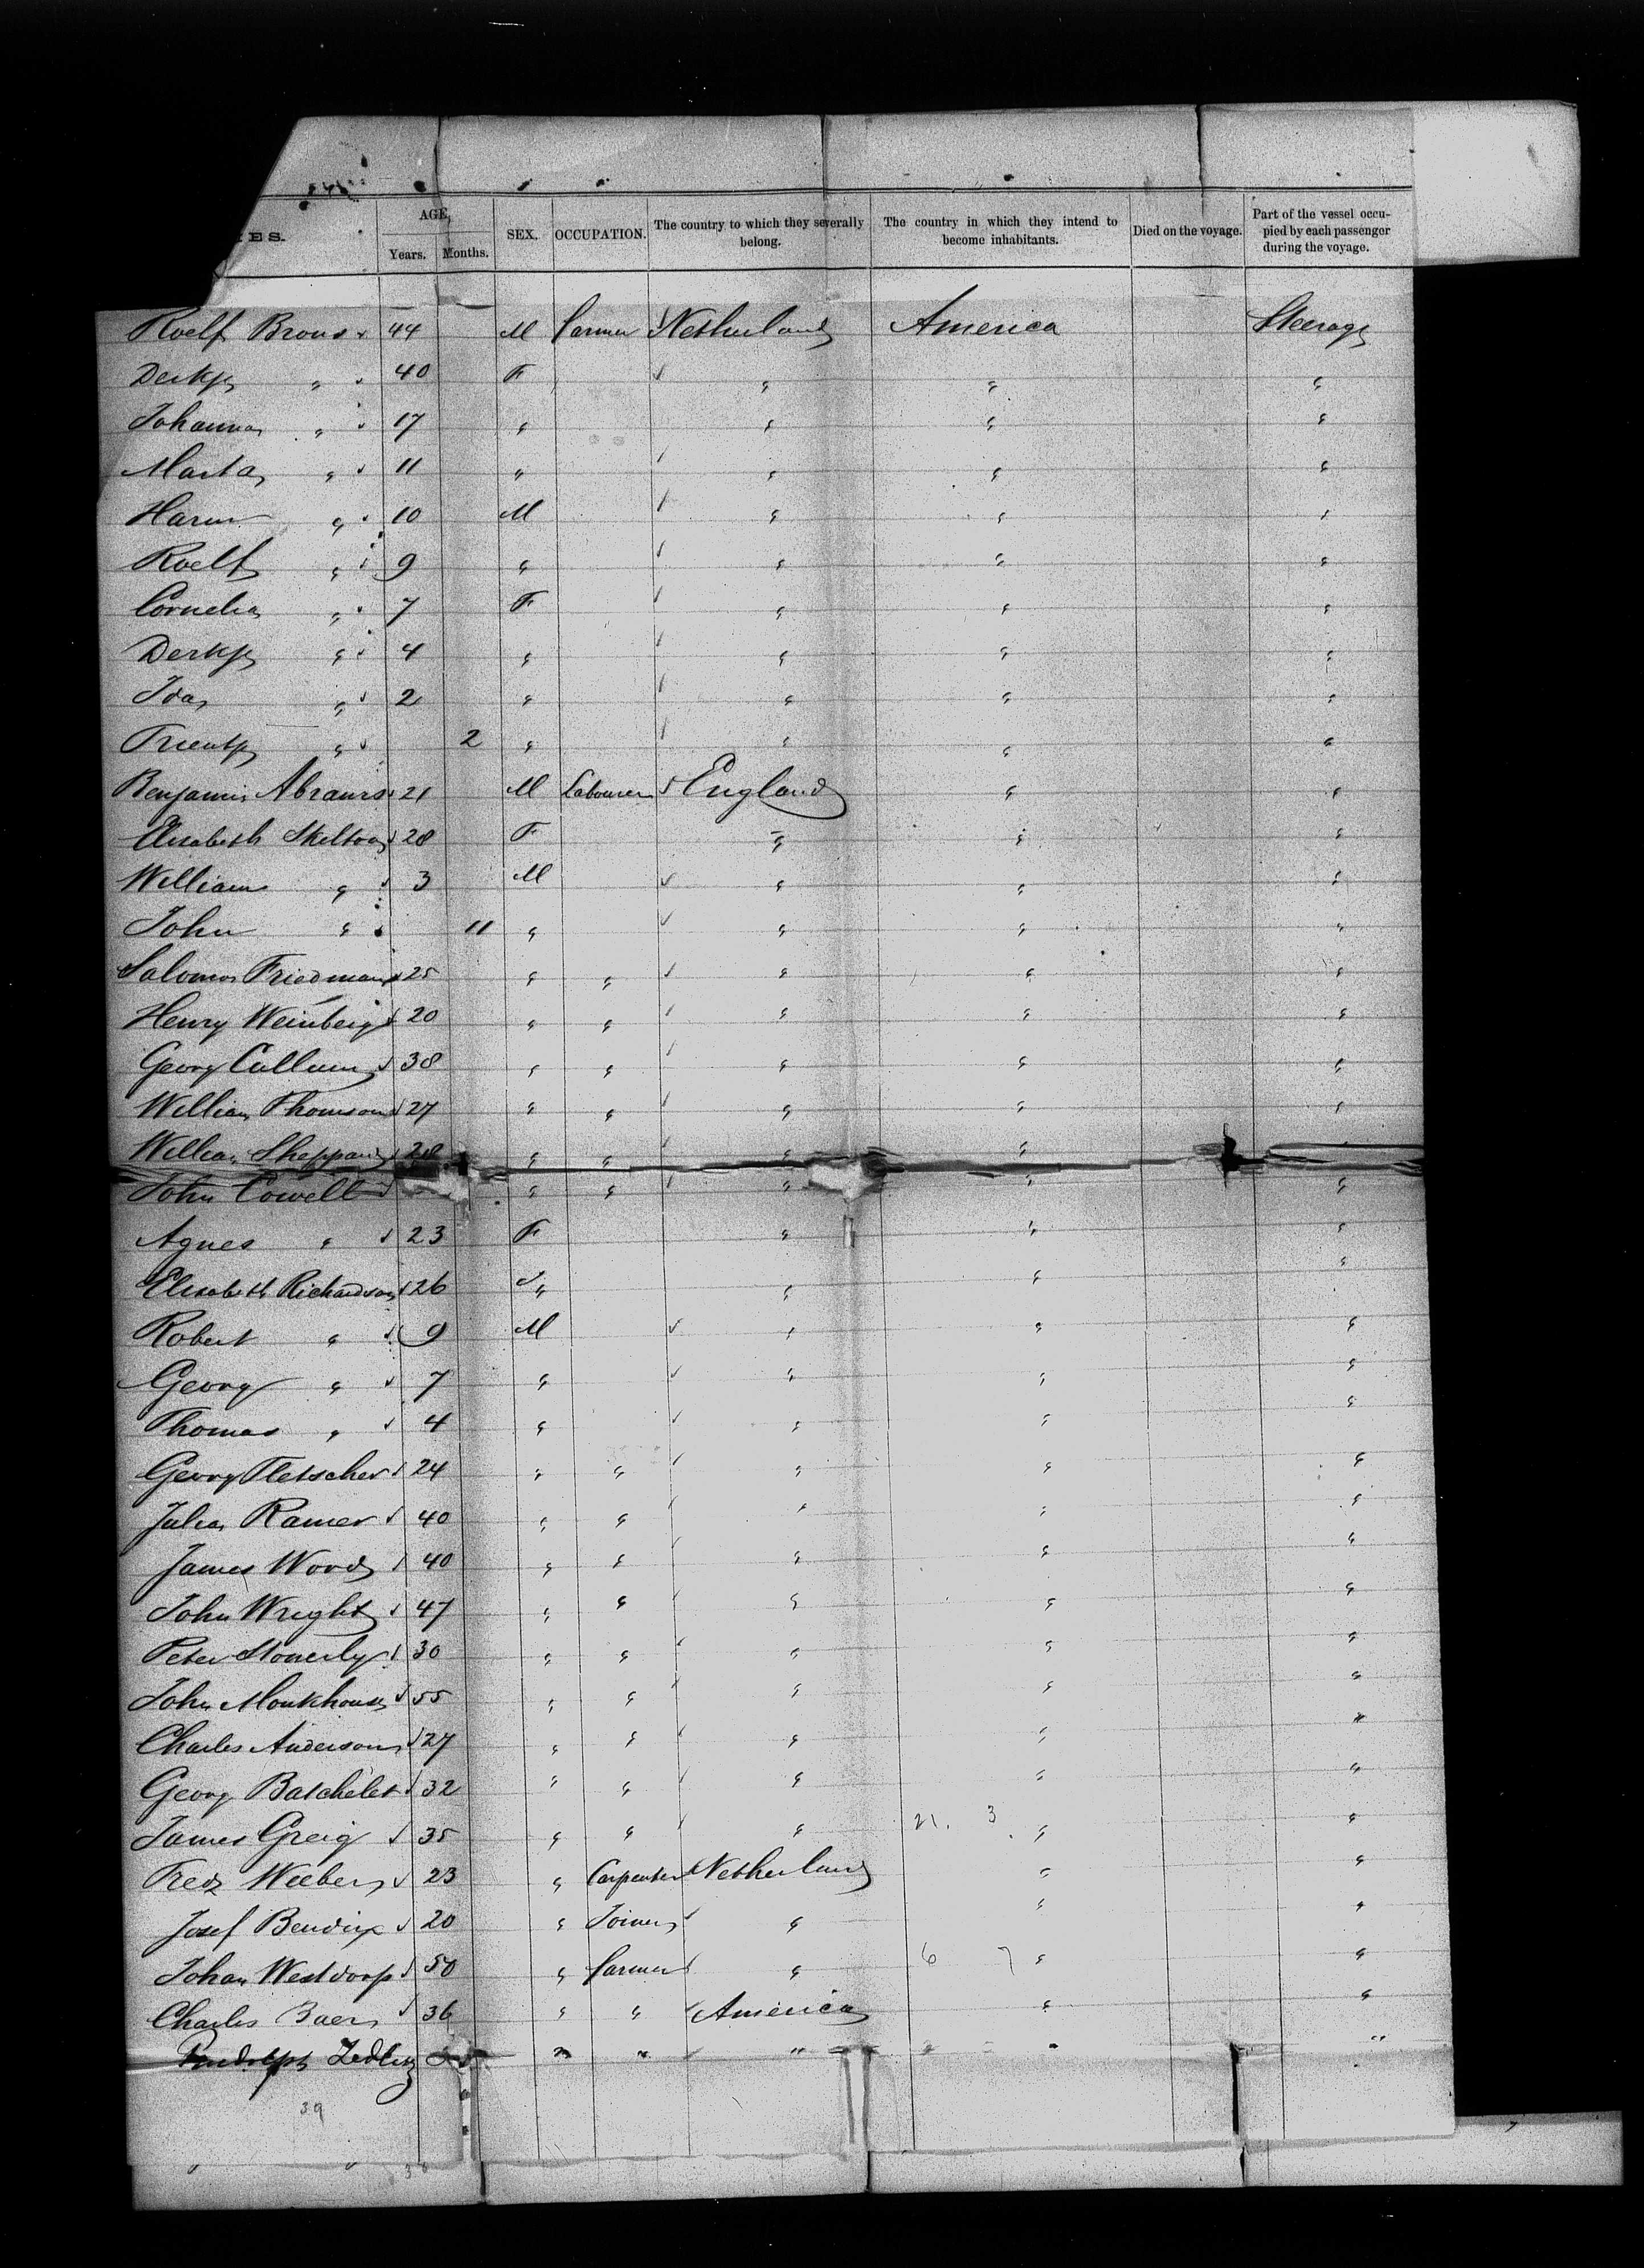 AGE,
SEX. OCCUPATION. The country to which they severally belong. The country in which they intend to become inhabitants. Died on the voyage. Part of the vessel occupied by each passenger during the voyage.
Years. Months.
Roelf Brons 44 M Farmer Netherland America Steerage
Derkje " 40 F " " "
Johanna " 17 " " " "
Marta " 11 " " " "
Harm " 10 M " " "
Roelf " 9 " " " "
Cornelia " 7 F " " "
Derkje " 4 " " " "
Ida " 2 " " " "
Trientje " 2 " " " "
Benjamin Abrams 21 M Labourer England " "
Elisabeth Skelton 28 F " " "
William " 3 M " " "
John " 11 " " " "
Salomon Friedman 25 " " " " "
Henry Weinberg 20 " " " " "
Georg Cullum 38 " " " " "
William Thomson 27 " " " " "
William Sheppard 28 " " " " "
John Cowell " " " " "
Agnes " 23 F " " "
Elisabeth Richardson 26 " " " "
Robert " 9 M " " "
Georg " 7 " " " "
Thomas " 4 " " " "
Georg Fletscher 24 " " " " "
Julia Ramer 40 " " " " "
James Wood 40 " " " " "
John Wright 47 " " " " "
Peter 30 " " " " "
John Monkhouse 55 " " " " "
Charles Anderson 27 " " " " "
Georg Batchelet 32 " " " " "
James Greig 35 " " " 21. 3 " "
Fredr Wiebers 23 " Carpenter Netherland " "
Josef Bendix 20 " Joiner " " "
Johan Westdorp 50 " Farmer " 6 7 " "
Charles Baer 36 " " America " "
Rudolph Zedlitz " " " " "
39